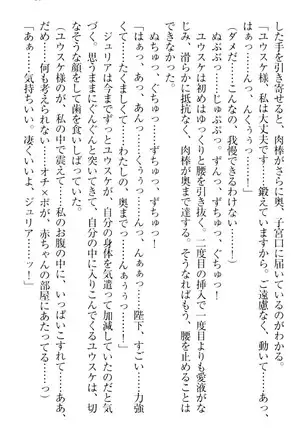 した手を引き寄せると、肉棒がさらに奥、子宮口に届いているのがわかった。
「ユウスケ様、私は大丈夫です……鍛えていますから……。ご遠慮なく、動いて……あっ
はぁっ……んっ、んくぅうっ……！」
（ダメだ……こんなの、我慢できるわけない……！）
ぬぷぷっ……じゅぷぷっ……ずんっ、ずちゅっ、ぐちゅっ！
ユウスケは初めはゆっくりと腰を引き抜く。二度目の挿入で一度目よりも愛液がな
じみ、滑らかに抵抗なく、肉棒が奥まで達する。そうなればもう、腰を止めることは
できなかった。
ぬちゅっ、ぐちゅっ……ずちゅっ、ずちゅっ！
「はぁっ、あっ、あんっ……くぅんっ、あぁっ……んあぁっ……陛下、すごい……力強
くて……たくましくて……わたしの、奥まで……っ、んぁぅっ……！」
ジュリアは今までずっとユウスケが、自分の身体を気遣って加減していたのだと気
づく。思うままにぐんぐんと突いてきて、自分の中に入りこんでくるユウスケは、切
なそうな顔をして歯を食いしばっていた。
（ユウスケ様のが、私の中で震えて……私のお腹の中に、いっぱいこすれて……ああ、
だめ……何も考えられない……オチ×ポが、赤ちゃんの部屋にあたってる……っ）
「あぁっ……気持ちいい……凄くいいよ、ジュリア……ッ！」